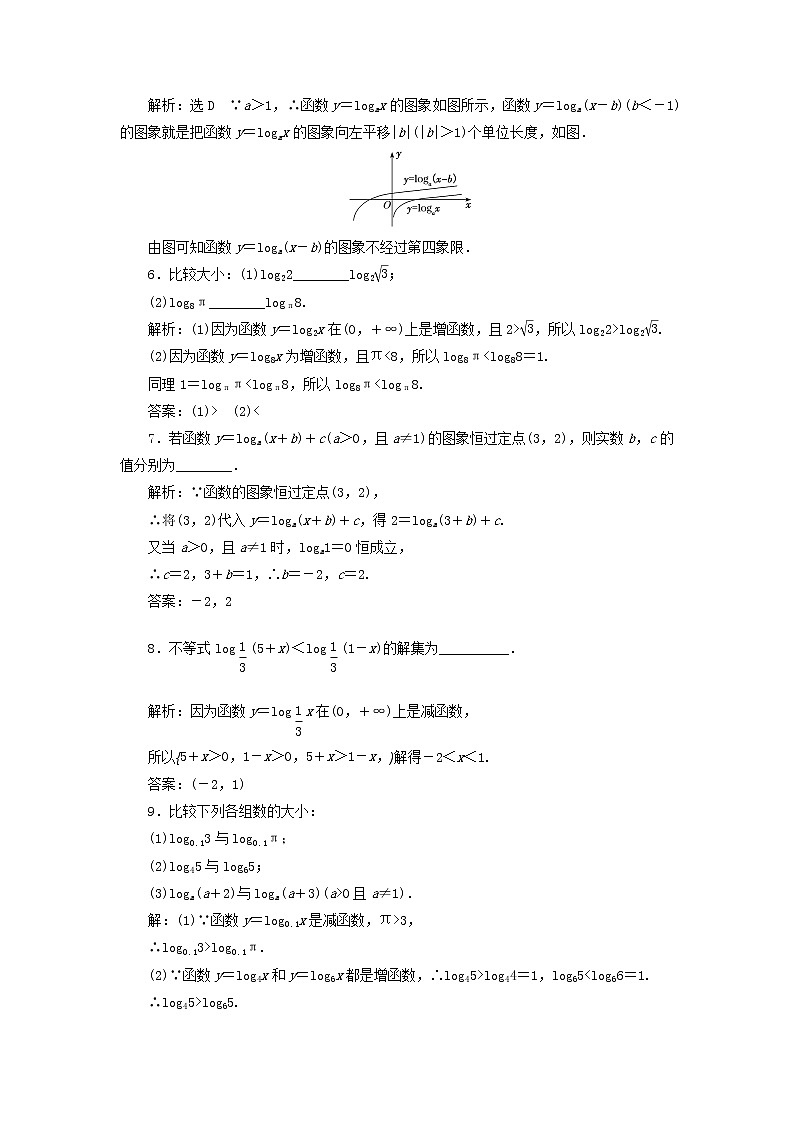 解析:选D ∵a＞1,∴函数y＝logₐx的图象如图所示,函数y＝logₐ(x－b)(b＜－1)
的图象就是把函数y＝logₐx的图象向左平移|b|(|b|＞1)个单位长度,如图.
y
y=logₐ(x-b)
O y=logₐx x
由图可知函数y＝logₐ(x－b)的图象不经过第四象限.
6.比较大小:(1)log₂2________log₂√3;
(2)log₈π________log_π8.
解析:(1)因为函数y＝log₂x在(0,＋∞)上是增函数,且2>√3,所以log₂2>log₂√3.
(2)因为函数y＝log₈x为增函数,且π<8,所以log₈π<log₈8＝1.
同理1＝log_ππ<log_π8,所以log₈π<log_π8.
答案:(1)> (2)<
7.若函数y＝logₐ(x＋b)＋c(a＞0,且a≠1)的图象恒过定点(3,2),则实数b,c的
值分别为________.
解析:∵函数的图象恒过定点(3,2),
∴将(3,2)代入y＝logₐ(x＋b)＋c,得2＝logₐ(3＋b)＋c.
又当a＞0,且a≠1时,logₐ1＝0恒成立,
∴c＝2,3＋b＝1,∴b＝－2,c＝2.
答案:－2,2
8.不等式log 1/3 (5＋x)＜log 1/3 (1－x)的解集为__________.
解析:因为函数y＝log 1/3 x在(0,＋∞)上是减函数,
所以{5＋x＞0,1－x＞0,5＋x＞1－x,)解得－2＜x＜1.
答案:(－2,1)
9.比较下列各组数的大小:
(1)log₀.₁3与log₀.₁π;
(2)log₄5与log₆5;
(3)logₐ(a＋2)与logₐ(a＋3)(a>0且a≠1).
解:(1)∵函数y＝log₀.₁x是减函数,π>3,
∴log₀.₁3>log₀.₁π.
(2)∵函数y＝log₄x和y＝log₆x都是增函数,∴log₄5>log₄4＝1,log₆5<log₆6＝1.
∴log₄5>log₆5.